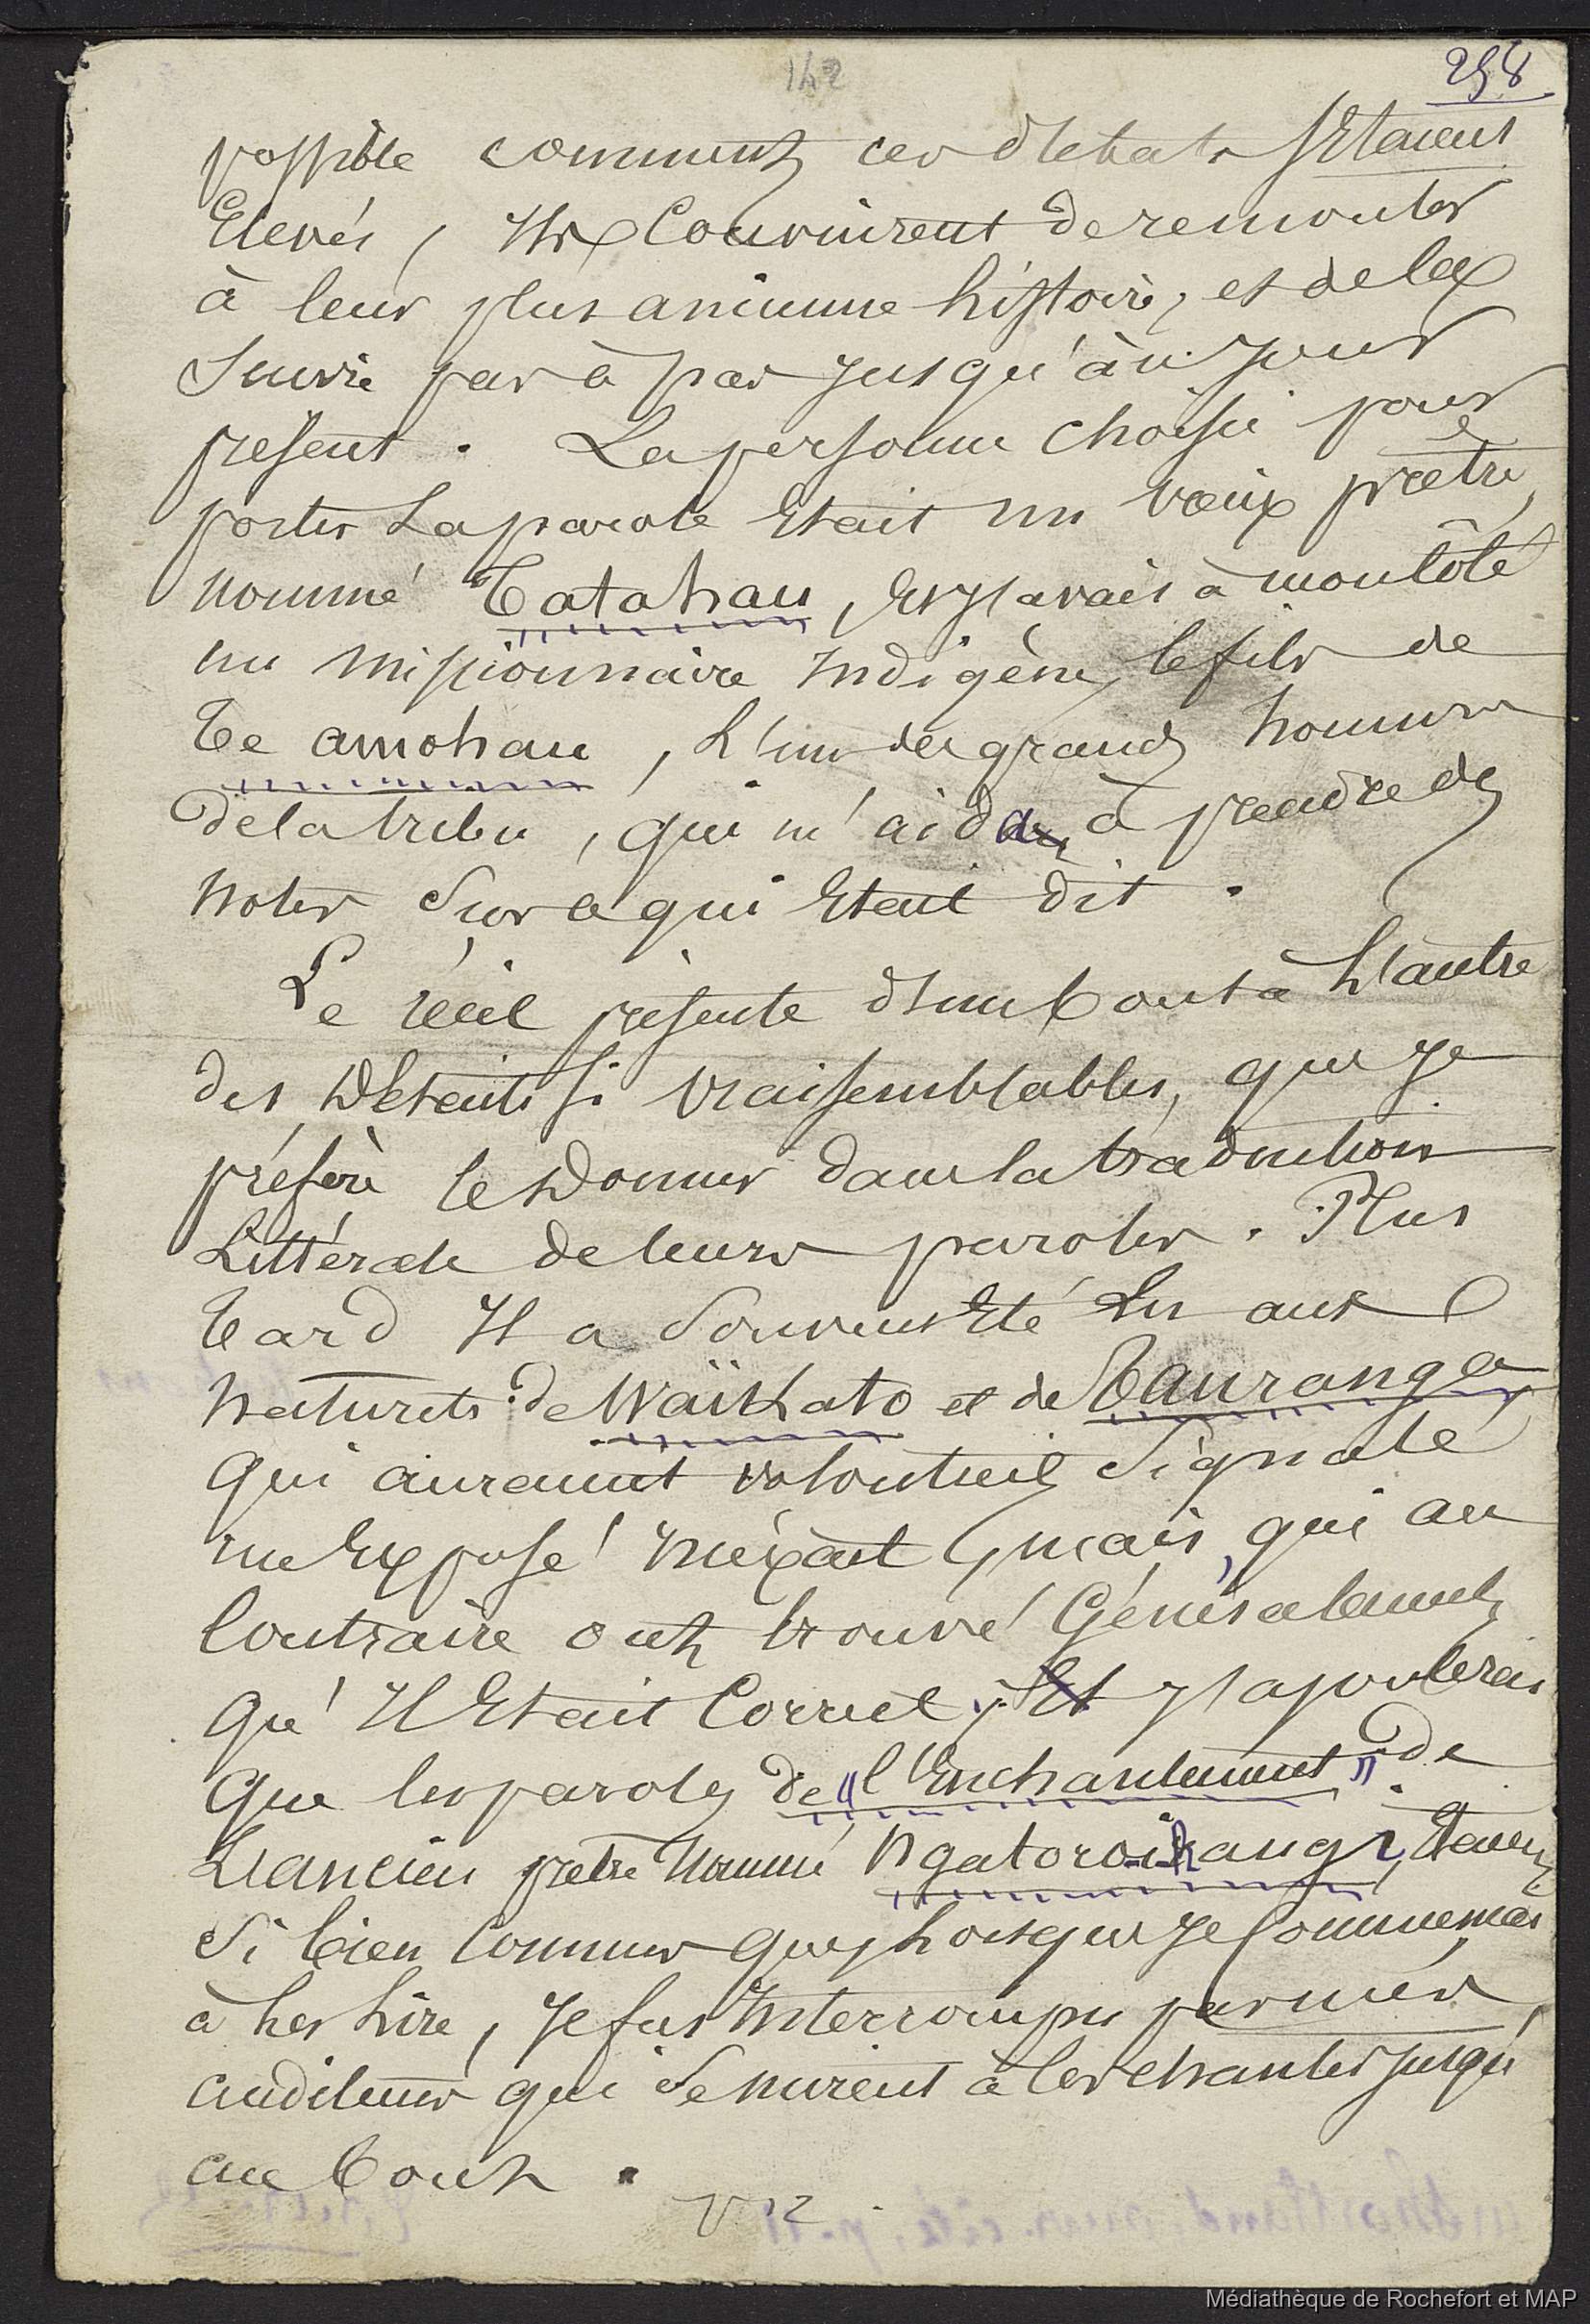 142
258
possible comment ces débats s'Etaient
Elevés, Ils Convinrent de remonter
à leur plus ancienne histoire, et de la
Suivre pas à pas Jusqu'au Jour
présent. La personne choisie pour
porter La parole Etait un vieux prêtre,
nommé Tatahau, Et J'avais à mon Côté
un missionnaire Indigène, le fils de
Te amohau, L'un des grands hommes
de la tribu, qui m'aida à prendre des
notes Sur ce qui Etait dit.
Le récit présente d'un bout à L'autre
des Détails si vraisemblables, que Je
préfère les Donner dans la traduction
Littérale de leurs paroles. Plus
tard Il a Souvent Eté Lu aux
naturels de Waïkato et de Tauranga
qui auraient volontiers Signalé
un Exposé inéxact, mais, qui au
Contraire ont trouvé Généralement
qu'Il Etait Correct; Et J'ajouterai
que les paroles de "l'Enchantement" de
L'ancien prêtre Nommé Ngatoroirangi, Etaient
Si bien Connues que, Lorsque Je Commençai
à Les Lire, Je fus Interrompu par mes
auditeurs qui Se mirent à les chanter jusqu'
au bout.
V 12
Médiathèque de Rochefort et MAP